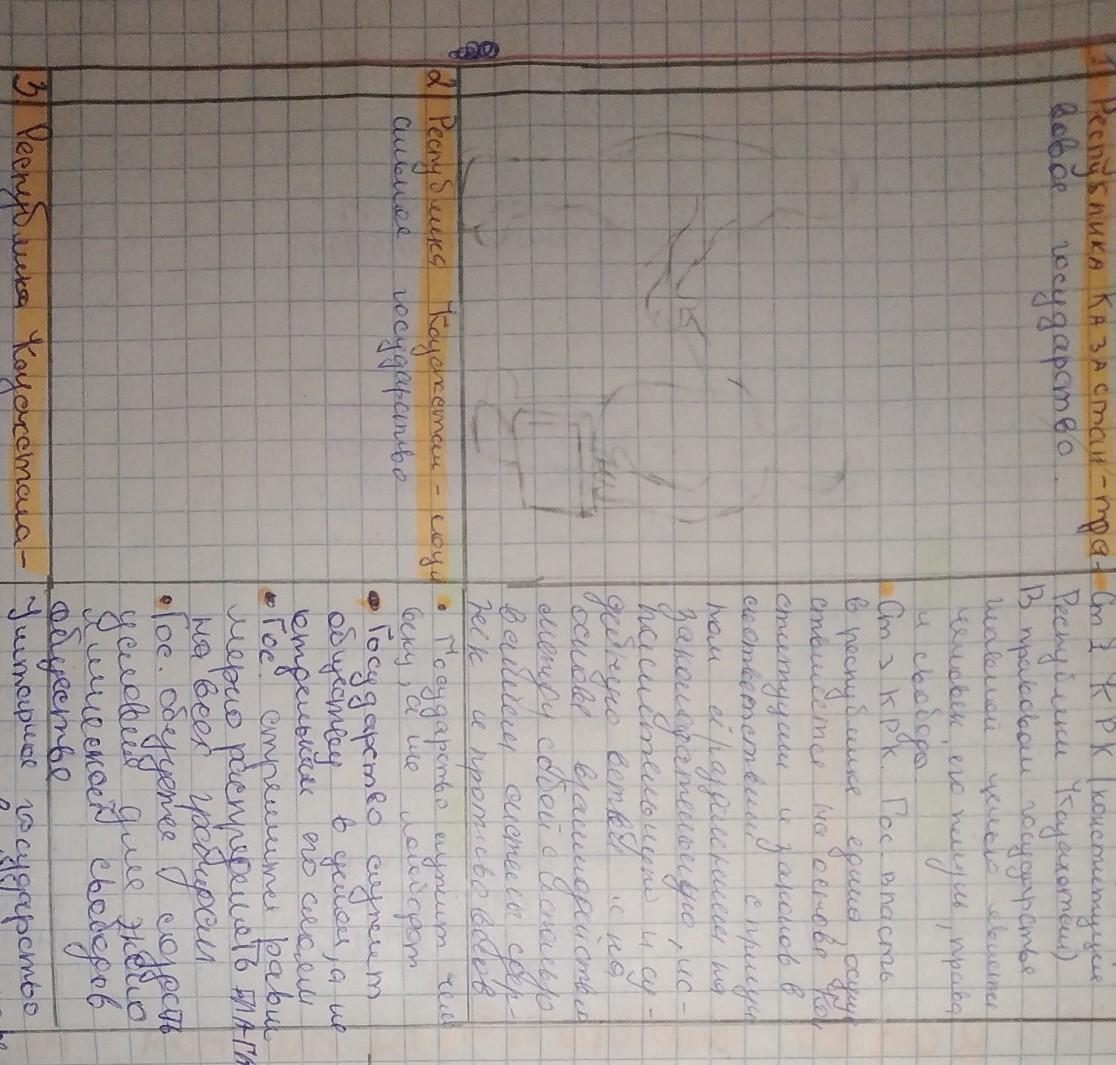 1) Республика Казахстан - пра-
вовое государство.
Ст 1 КРК (конституция
Республики Казахстан)
В правовом государстве
главной целью является
человек, его жизнь, права
и свобода.
Ст 3 КРК. Гос. власть
в республике едина, осущ
ствляется на основе Кон
ституции и законов в
соответствии с принци
пом её разделения на
законодательную, ис-
полнительную и су-
дебную ветви с
основе взаимодействия
между собой с использо
ванием системы сдер-
жек и противовесов
2) Республика Казахстан - соци
альное государство
• Государство служит чело
веку, а не наоборот
• Государство служит
обществу в целом, а не
отдельным его слоям
• Гос. стремится равно
мерно распределить блага
на всех граждан.
• Гос. обязуется создать
условия для
общества
3) Республика Казахстан -
Унитарное государство